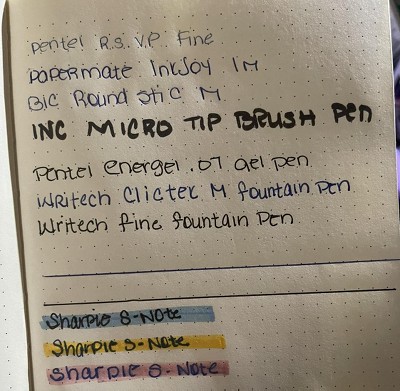 Pentel R.S.V.P. Fine
Papermate InkJoy 1M
Bic Round Stic M
INC MICRO TIP BRUSH PEN
Pentel energel .07 gel pen
Writech Clictec M fountain pen
Writech fine fountain pen
Sharpie S-Note
Sharpie S-Note
Sharpie S-Note